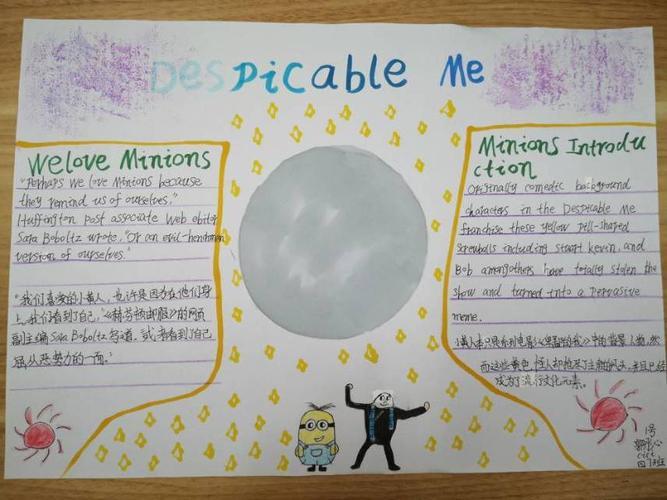 Despicable Me
We love Minions
"Perhaps we love Minions because
they remind us of ourselves,"
Huffington post associate web ebitor
Sara Boboltz wrote, "Or an evil-henchman
version of ourselves."
"我们喜爱的小黄人,也许是因为在他们身
上,我们看到了自己,"《赫芬顿邮报》的网页
副主编Sara Boboltz写道,"或者看到了自己
屈从恶势力的一面."
Minions Introdu
ction
Originally comedic background
characters in the Despicable Me
franchise these yellow pill-shaped
screwballs including stuart kevin, and
Bob amongothers have totally stolen the
show and turned into a pervasive
meme.
小黄人本只是系列电影《卑鄙的我》中的背景人物,然
而这些黄色怪人却抢尽了主角的风头,并且已经
成为了流行文化元素.
1号
四
班